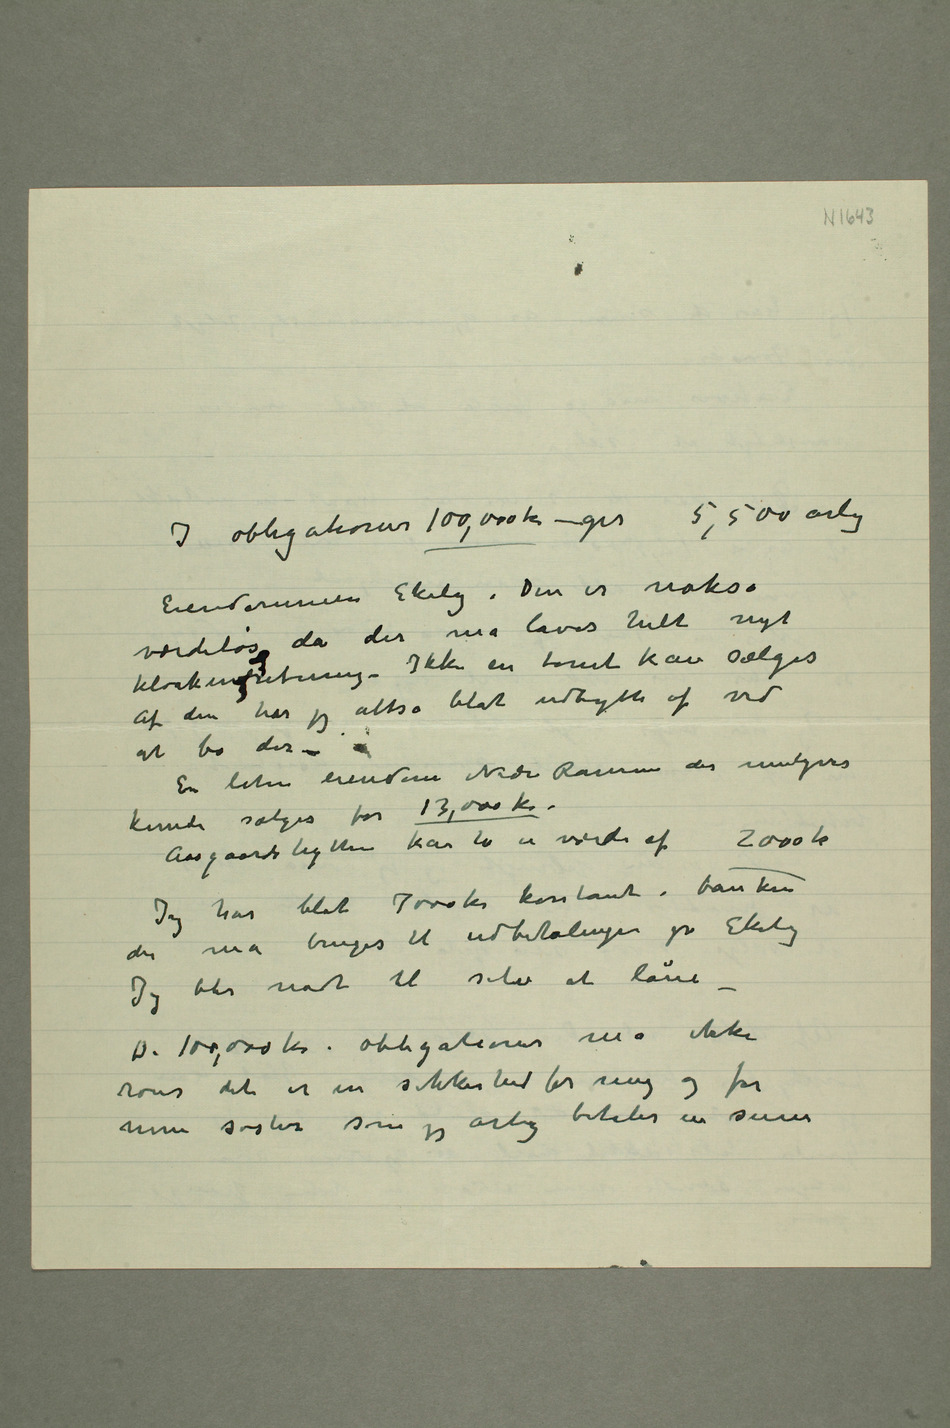 N1643
I obligationer 100,000 kr – ger 5,500 årlig
Eiendommen Ekely. Den er nokså
værdiløs da der må laves helt nyt
kloakindretning – Ikke en tomt kan sælges
Af den har jeg altså blot udbytte af ved
at bo der –
En liten eiendom Nedre Ramme der muligvis
kunde sælges for 13,000 kr.
Aasgaardshytten kan ha en værdi af 2000 kr
Jeg har blot 7000 kr kontant i banken
der må bruges til udbetalinger på Ekely
Jeg blir nødt til selv at låne –
De 100,000 kr i obligationer må ikke
røres det er en sikkerhed for mig og for
min søster som jeg årlig betaler en sum